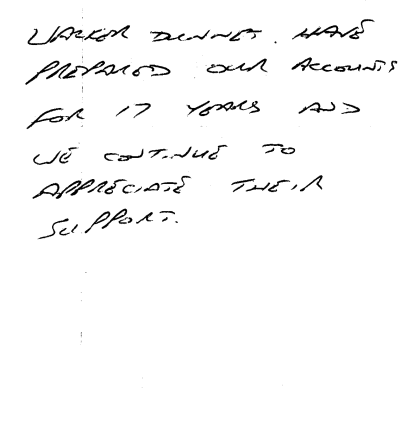 WALKER DUNNET. HAVE
PREPARED OUR ACCOUNTS
FOR 17 YEARS AND
WE CONTINUE TO
APPRECIATE THEIR
SUPPORT.